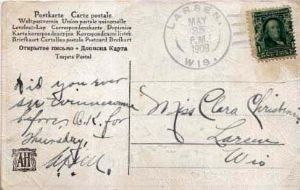 Postkarte Carte postale.
Weltpostverein Union postale universelle
Levelező-Lap Correspondenzkarte Dopisnice
Karta korespondencyjna Korespondenční lístek
Brefkort Cartolina postale Postcard Briefkaart
Открытое письмо - Дописна Карта
Tarjeta Postal
LARSEN
MAY
1908
WIS.
Did you ever
see
before O. K. for
Thursday.
Miss Clara Christensen
Larsen
Wis
AH